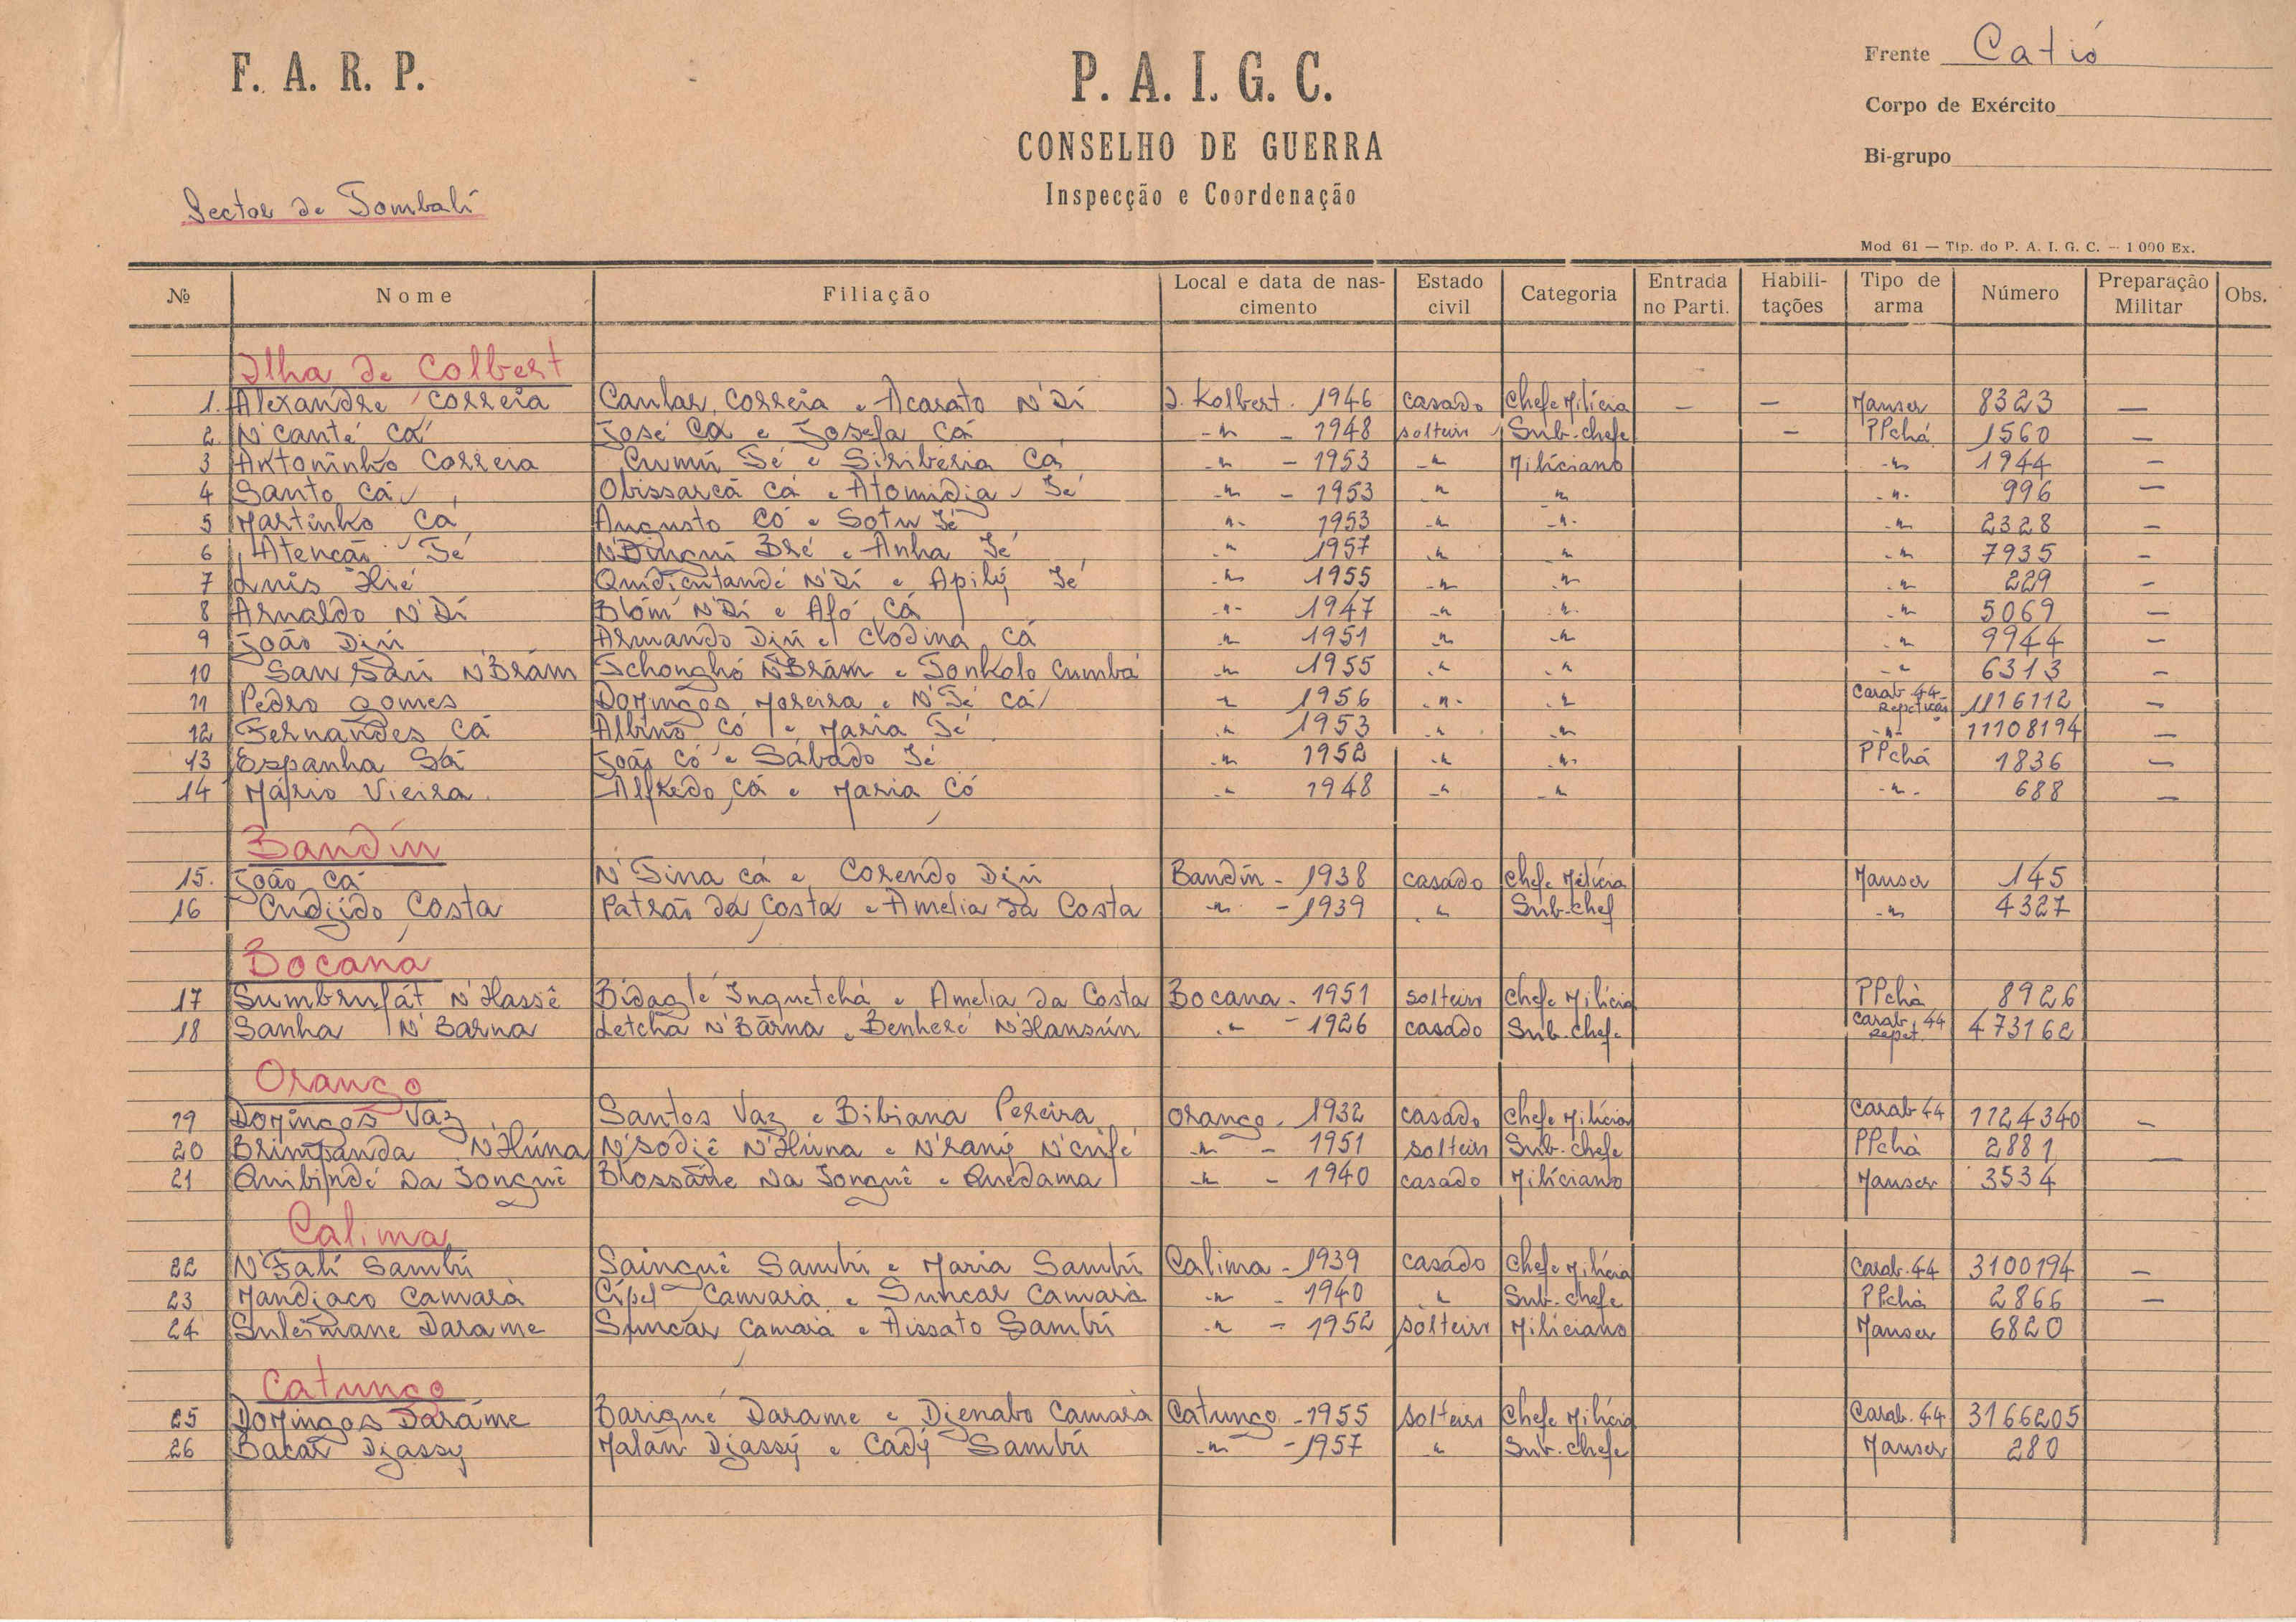 F. A. R. P.
P. A. I. G. C.
CONSELHO DE GUERRA
Inspecção e Coordenação
Frente Catió
Corpo de Exército
Bi-grupo
Sector de Tombalí
Mod 61 — Tip. do P. A. I. G. C. — 1 000 Ex.
№ Nome Filiação Local e data de nascimento Estado civil Categoria Entrada no Parti. Habilitações Tipo de arma Número Preparação Militar Obs.
Ilha de Colbert
1. Alexandre Correia Canlar Correia e Acarato N'Dí I. Kolbert - 1946 casado Chefe Milícia — — Mauser 8323 —
2. N'canté Cá José Cá e Josefa Cá -"- - 1948 solteiro Sub-chefe — PPchá 1560 —
3 Antoninho Correia Cumú Té e Siriberia Cá -"- - 1953 -" Miliciano -"- 1944 —
4 Santo Cá Obissarcã Cá e Atomidia Té -"- - 1953 " " -"- 996 —
5 Martinho Cá Augusto Có e Sotu Té "- 1953 -" -"- -" 2328 —
6 Atenção Té N'Dinguí Bré e Anha Té -" 1957 -" " -" 7935 —
7 Luís Hié Quidicutandé N'Dí e Apilý Té -" 1955 -" -" -" 229 —
8 Arnaldo N'Dí Blóm N'Dí e Afó Cá -"- 1947 -" -"- -" 5069 —
9 João Djú Armando Djú e Clodina Cá -" 1951 -" -" -" 9944 —
10 San Saú N'Brám Tchonghó N'Brám e Tonkolo Cumba -" 1955 -" -" -" 6313 —
11 Pedro Gomes Domingos Moreira e N'Té Cá " 1956 -"- -" Carab 44 Repetição 1116112 —
12 Fernandes Cá Albino Có e Maria Té -" 1953 -" -" -"- 11108194 —
13 Espanha Sá João Có e Sábado Té -" 1952 -" -"- PPchá 1836 —
14 Mário Vieira Alfredo Cá e Maria Có -" 1948 -" -" -"- 688 —
Bandín
15. João Cá N'Tina Cá e Corendo Djú Bandín - 1938 casado Chefe Milícia Mauser 145
16 Cudjido Costa Patrão da Costa e Amélia da Costa -"- - 1939 " Sub-chef -" 4327
Bocana
17 Sumbrufát N'Hassê Bidaglé Inquetchá e Amelia da Costa Bocana - 1951 solteiro Chefe Milícia PPchá 8926
18 Sanha N'Barna Letchá N'Bárna e Benheré N'Hansún -" - 1926 casado Sub-chefe Carab. 44 Repet. 473162
Orango
19 Domingos Vaz Santos Vaz e Bibiana Pereira Orango - 1932 casado Chefe Milícia Carab 44 1124340 —
20 Brimpanda N'Húna N'sodjê N'Húna e N'raný N'cufé -"- - 1951 solteiro Sub-chefe PPchá 2881 —
21 Quibindé Da Tonguê Blossáne Na Tonguê e Quedama -"- - 1940 casado Miliciano Mauser 3534
Calima
22 N'Falí Sambú Sainguê Sambú e Maria Sambú Calima - 1939 casado Chefe Milícia Carab. 44 3100194 —
23 Mandjaco Camará Cípel Camará e Suncar Camará -"- - 1940 " Sub-chefe PPchá 2866 —
24 Suleimane Darame Suncar Camará e Aissato Sambú -" - 1952 solteiro Miliciano Mauser 6820
Catungo
25 Domingos Daráme Barigué Darame e Djenabo Camará Catungo - 1955 solteiro Chefe Milícia Carab. 44 3166205
26 Bacar Djassy Malan Djassý e Cadý Sambú -"- - 1957 " Sub-chefe Mauser 280